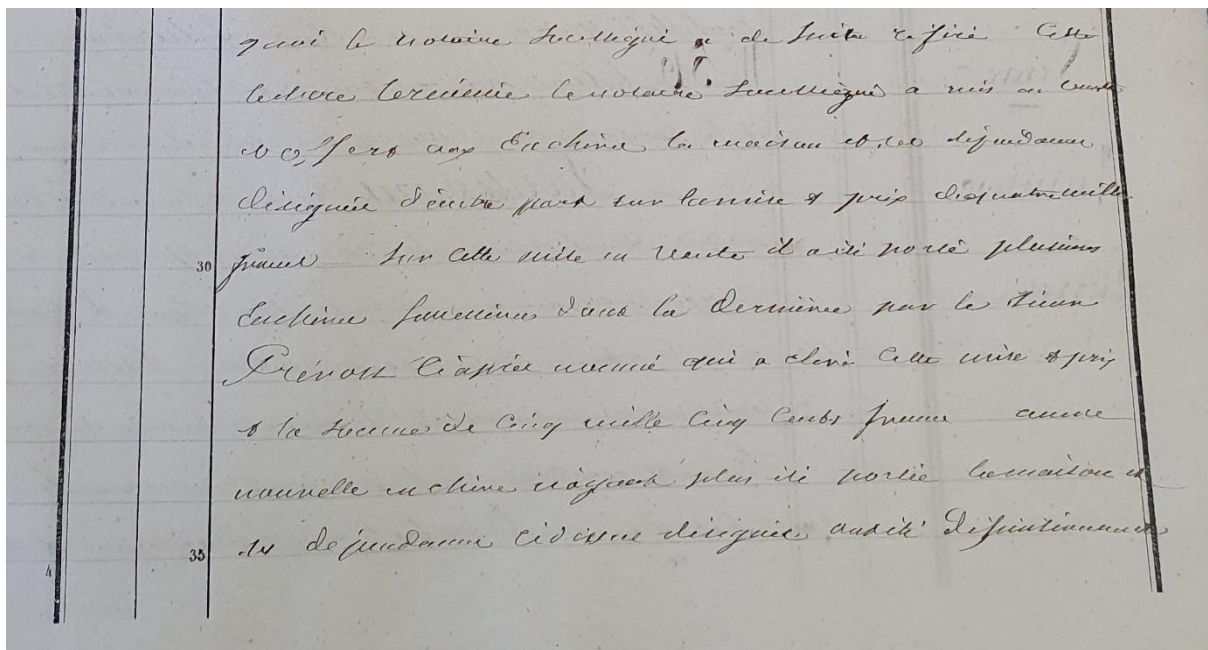 quoi le notaire soussigné a de suite  Cette
lecture terminée le notaire soussigné a mis en vente
et offert aux Enchères la maison et ses dépendances
désignées d'autre part sur la mise à prix de quatre mille
30 francs Sur cette mise en vente il a été porté plusieurs
Enchères  dont la Dernière par le Sieur
Prévost Ciaprès nommé qui a élevé cette mise à prix
à la somme de Cinq mille Cinq Cents francs aucune
nouvelle enchère n'ayant plus été portée la maison et
35 ses dépendances cidessus désignées ont été définitivement
4